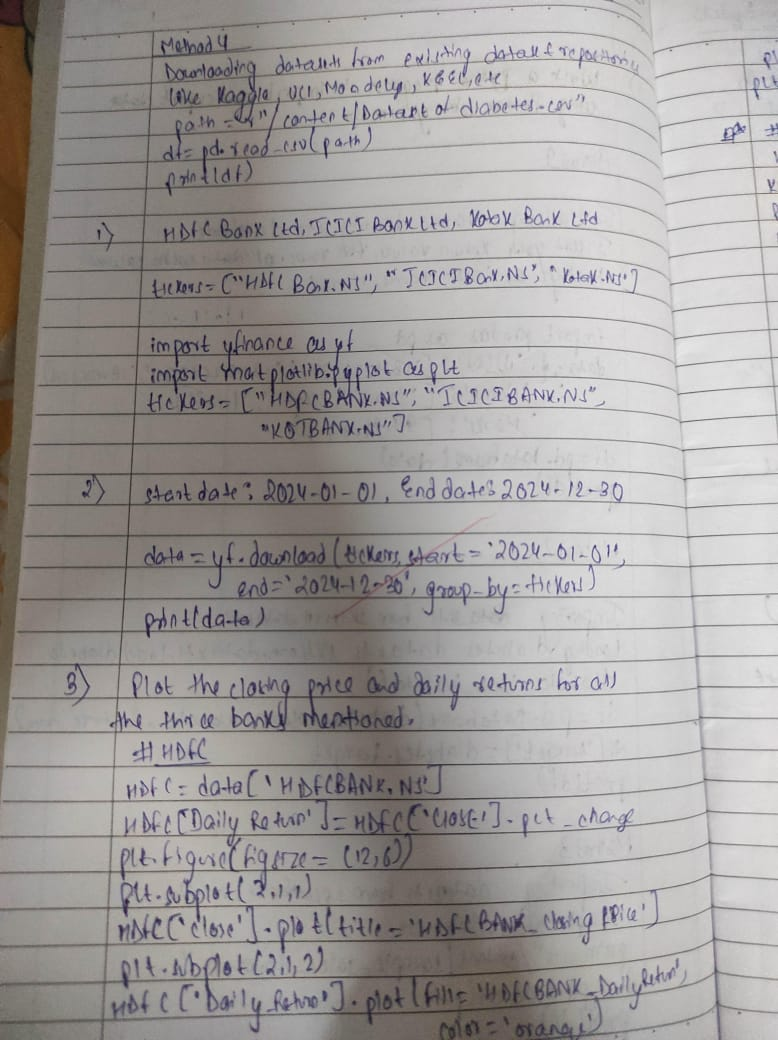 Method 4
Downloading datasets from existing dataset repository
like Kaggle, UCI, Moodely, KEEL, etc
path = "/content/Dataset of diabetes.csv"
df = pd.read_csv(path)
print(df)
1) HDFC Bank Ltd, ICICI Bank Ltd, Kotak Bank Ltd
tickers = ["HDFC Bank.NS", "ICICI Bank.NS", "Kotak.NS"]
import yfinance as yf
import matplotlib.pyplot as plt
tickers = ["HDFCBANK.NS", "ICICIBANK.NS",
"KOTBANK.NS"]
2) start date: 2024-01-01, End date: 2024-12-30
data = yf.download(tickers, start = '2024-01-01',
end = '2024-12-30', group_by = tickers)
print(data)
3) Plot the closing price and daily returns for all
the three banks mentioned.
# HDFC
HDFC = data['HDFCBANK.NS']
HDFC['Daily Return'] = HDFC['Close'].pct_change
plt.figure(figsize = (12,6))
plt.subplot(2,1,1)
HDFC['Close'].plot(title = 'HDFCBANK_closing price']
plt.subplot(2,1,2)
HDFC['Daily_Return'].plot(title = 'HDFCBANK_DailyReturn',
color = 'orange')